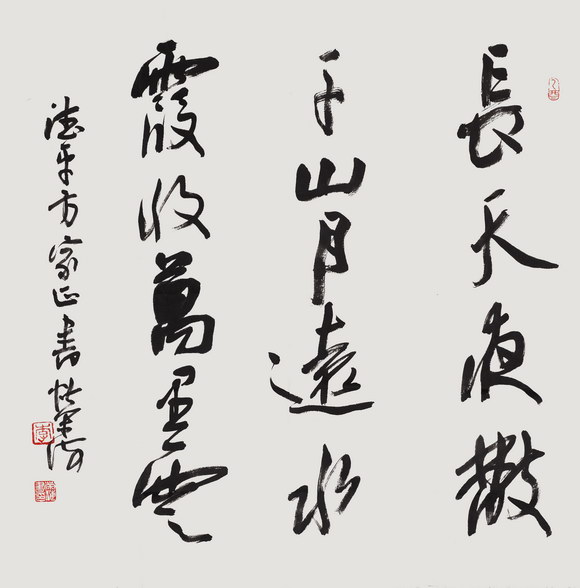 長天夜散
千山月遠水
霞收萬里雲
德平方家正書